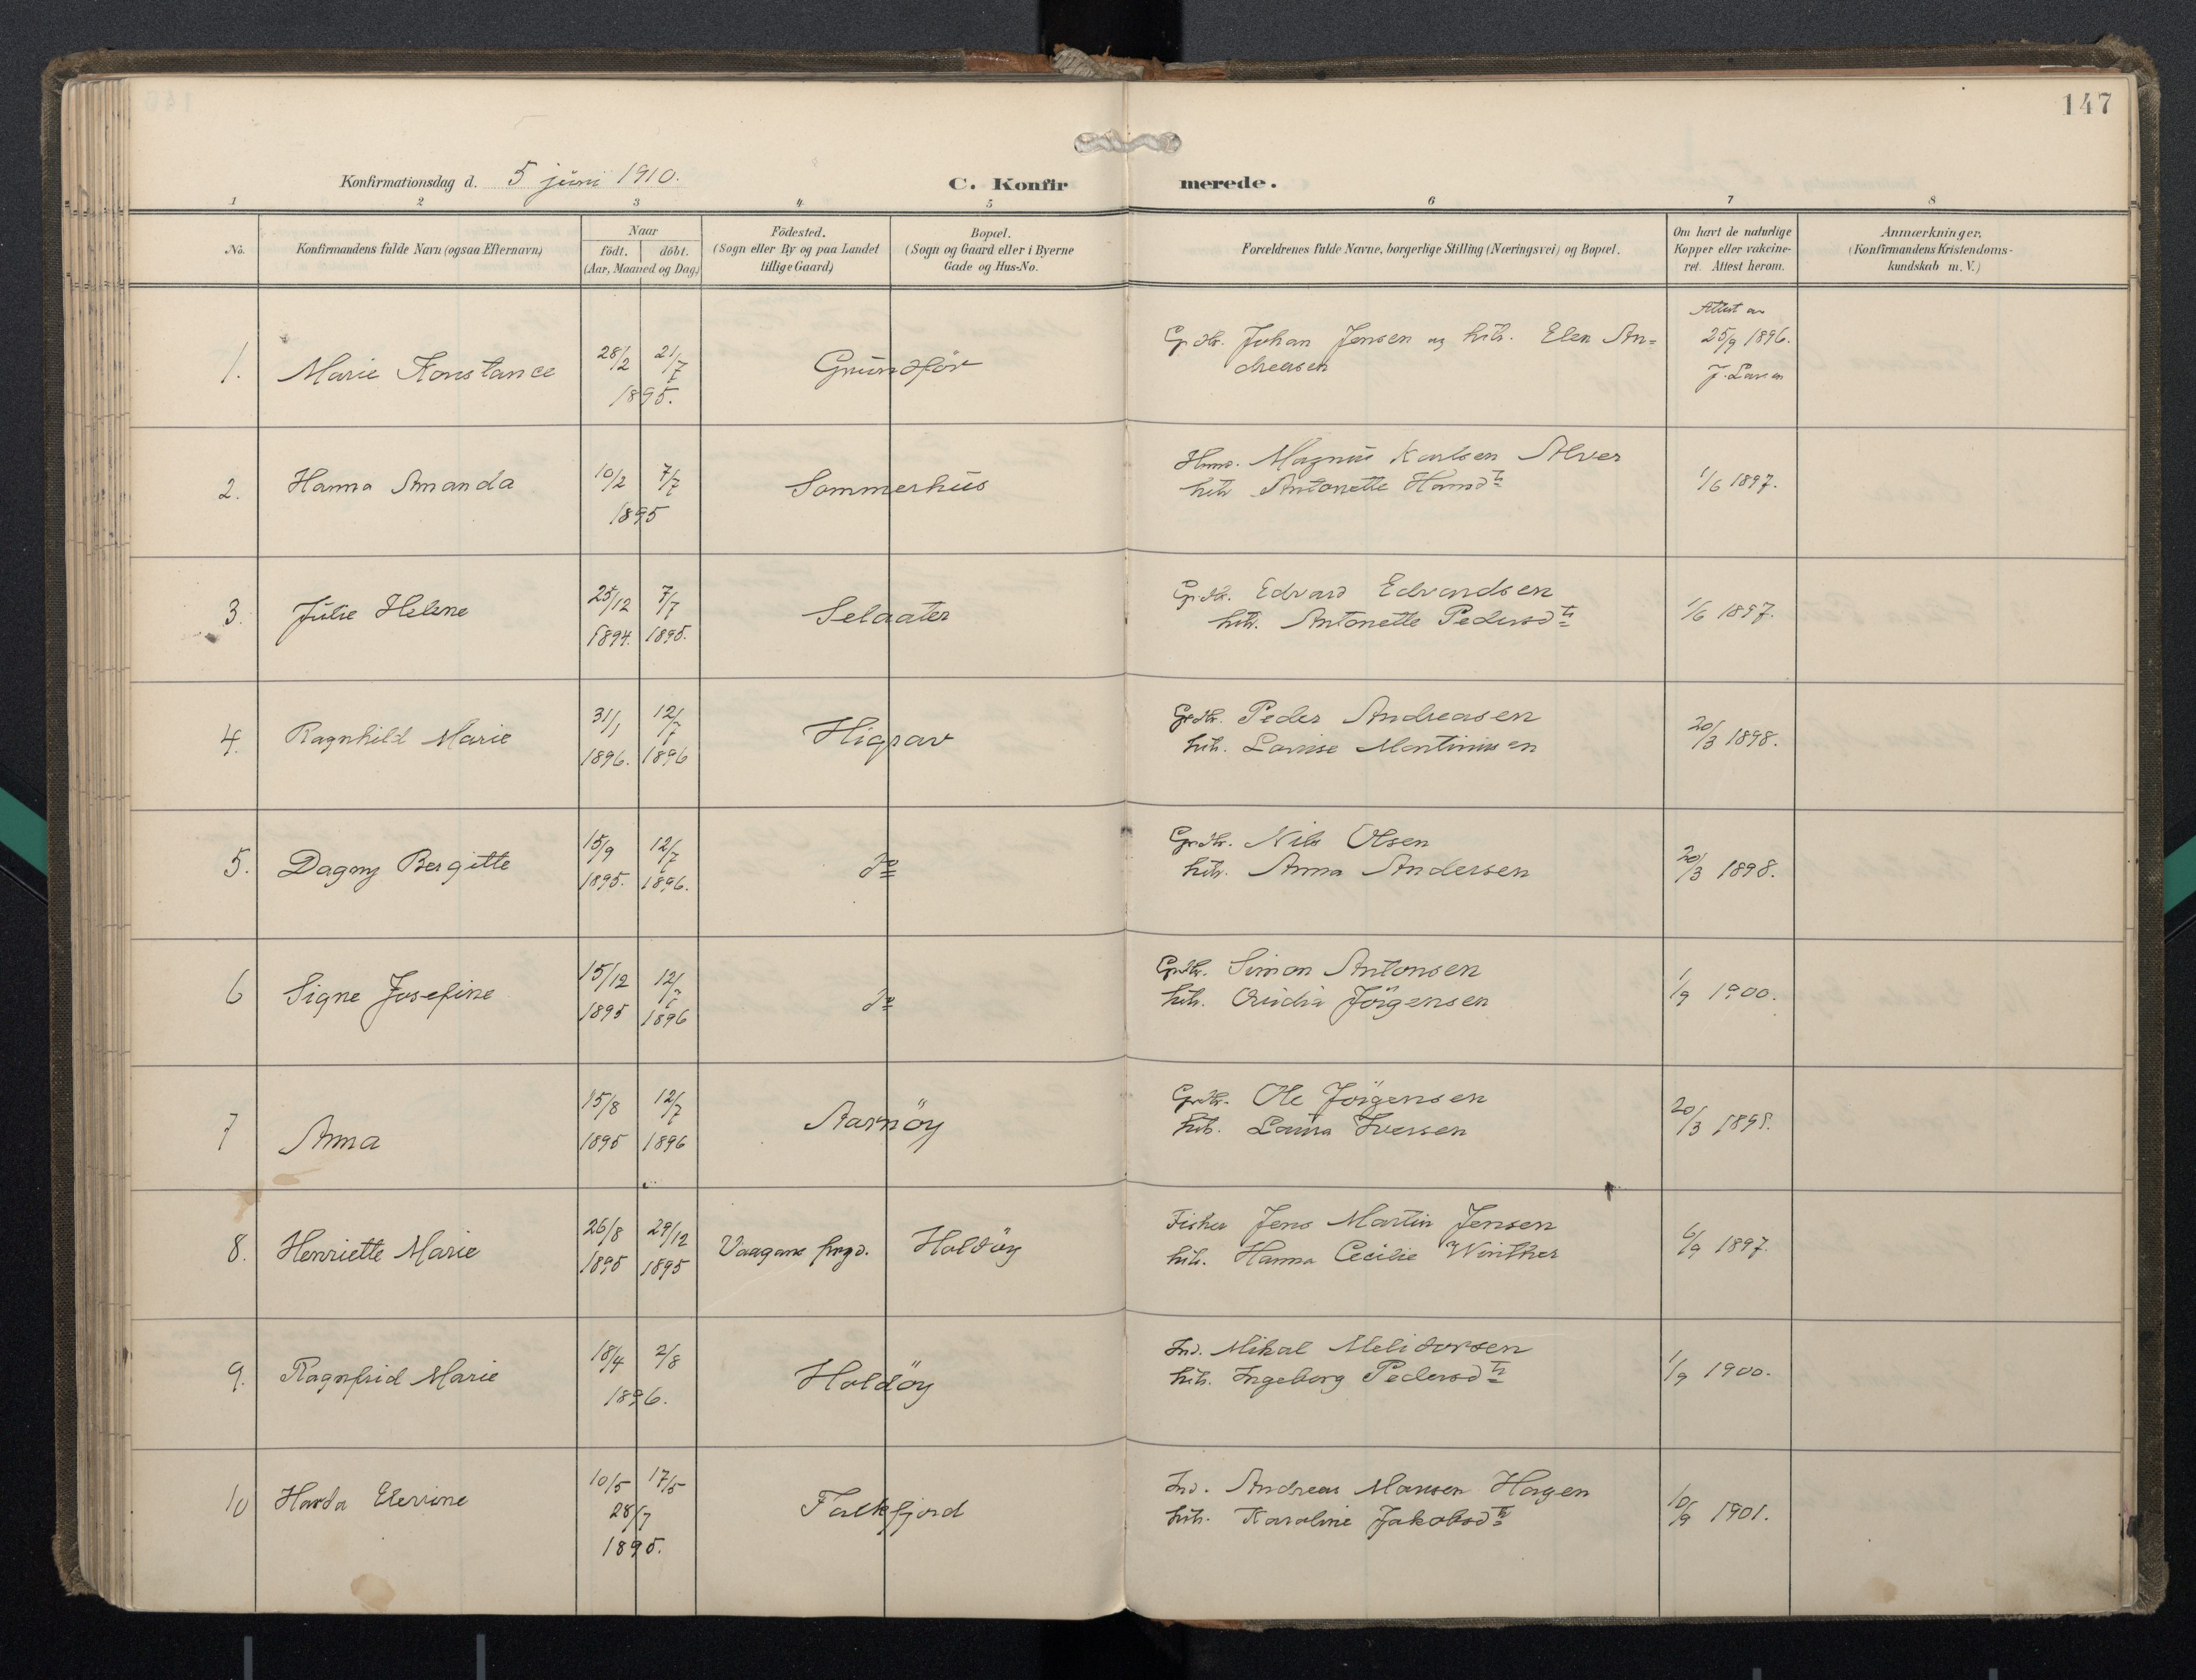 147
Konfirmationsdag d. 5 juni 1910.
C. Konfirmerede.
1 2 3 4 5 6 7 8
No.
Konfirmandens fulde Navn (ogsaa Efternavn)
Naar
födt. döbt.
(Aar, Maaned og Dag)
Födested.
(Sogn eller By og paa Landet
tillige Gaard)
Bopæl.
(Sogn og Gaard eller i Byerne
Gade og Hus-No.
Forældrenes fulde Navne, borgerlige Stilling (Næringsvei) og Bopæl.
Om havt de naturlige
Kopper eller vakcine-
ret. Attest herom.
Anmærkninger.
(Konfirmandens Kristendoms-
kundskab m. V.)
1. Marie Konstance 28/2 21/7 1895. Grundför
Grdbr. Johan Jensen og hstr. Elen An=
dreasen
Attest av
25/9 1896.
2. Hanna Amanda 10/2 7/7 1895 Sommerhus
Magnus Karlsen Alver
hstr. Antonette Hansdtr
1/6 1897.
3. Julie Helene 25/12 1894. 7/7 1895. Selaater
Grdbr. Edvard Edvardsen
hstr. Antonette Pedersdtr
1/6 1897.
4. Ragnhild Marie 31/1 1896. 12/7 1896 Higrav
Grdbr. Peder Andreasen
hstr. Lovise Martinussen
20/3 1898.
5. Dagny Bergitte 15/9 1895. 12/7 1896. do
Grdbr. Nils Olsen
hstr. Anna Andersen
20/3 1898.
6 Signe Josefine 15/12 1895 12/7 1896 do
Grdbr. Simon Antonsen
hstr. Jörgensen
1/9 1900.
7 Anna 15/8 1895 12/7 1896 Aarnöy
Grdbr. Ole Jörgensen
hstr. Laura Iversen
20/3 1898.
8. Henriette Marie 26/8 1895 29/12 1895 Vaagans prgd. Holdöy
Fisker Jens Martin Jensen
hstr. Hanna Cecilie Winther
6/9 1897.
9. Ragnfrid Marie 18/4 2/8 1896. Holdöy
Ind. Mikal Melidorsen
hstr. Ingeborg Pedersdtr
1/9 1900.
10 10/5 17/5
28/7
1895. Falkfjord
Ind. Andreas Hagen
hstr. Karoline Jakobsdtr
10/9 1901.